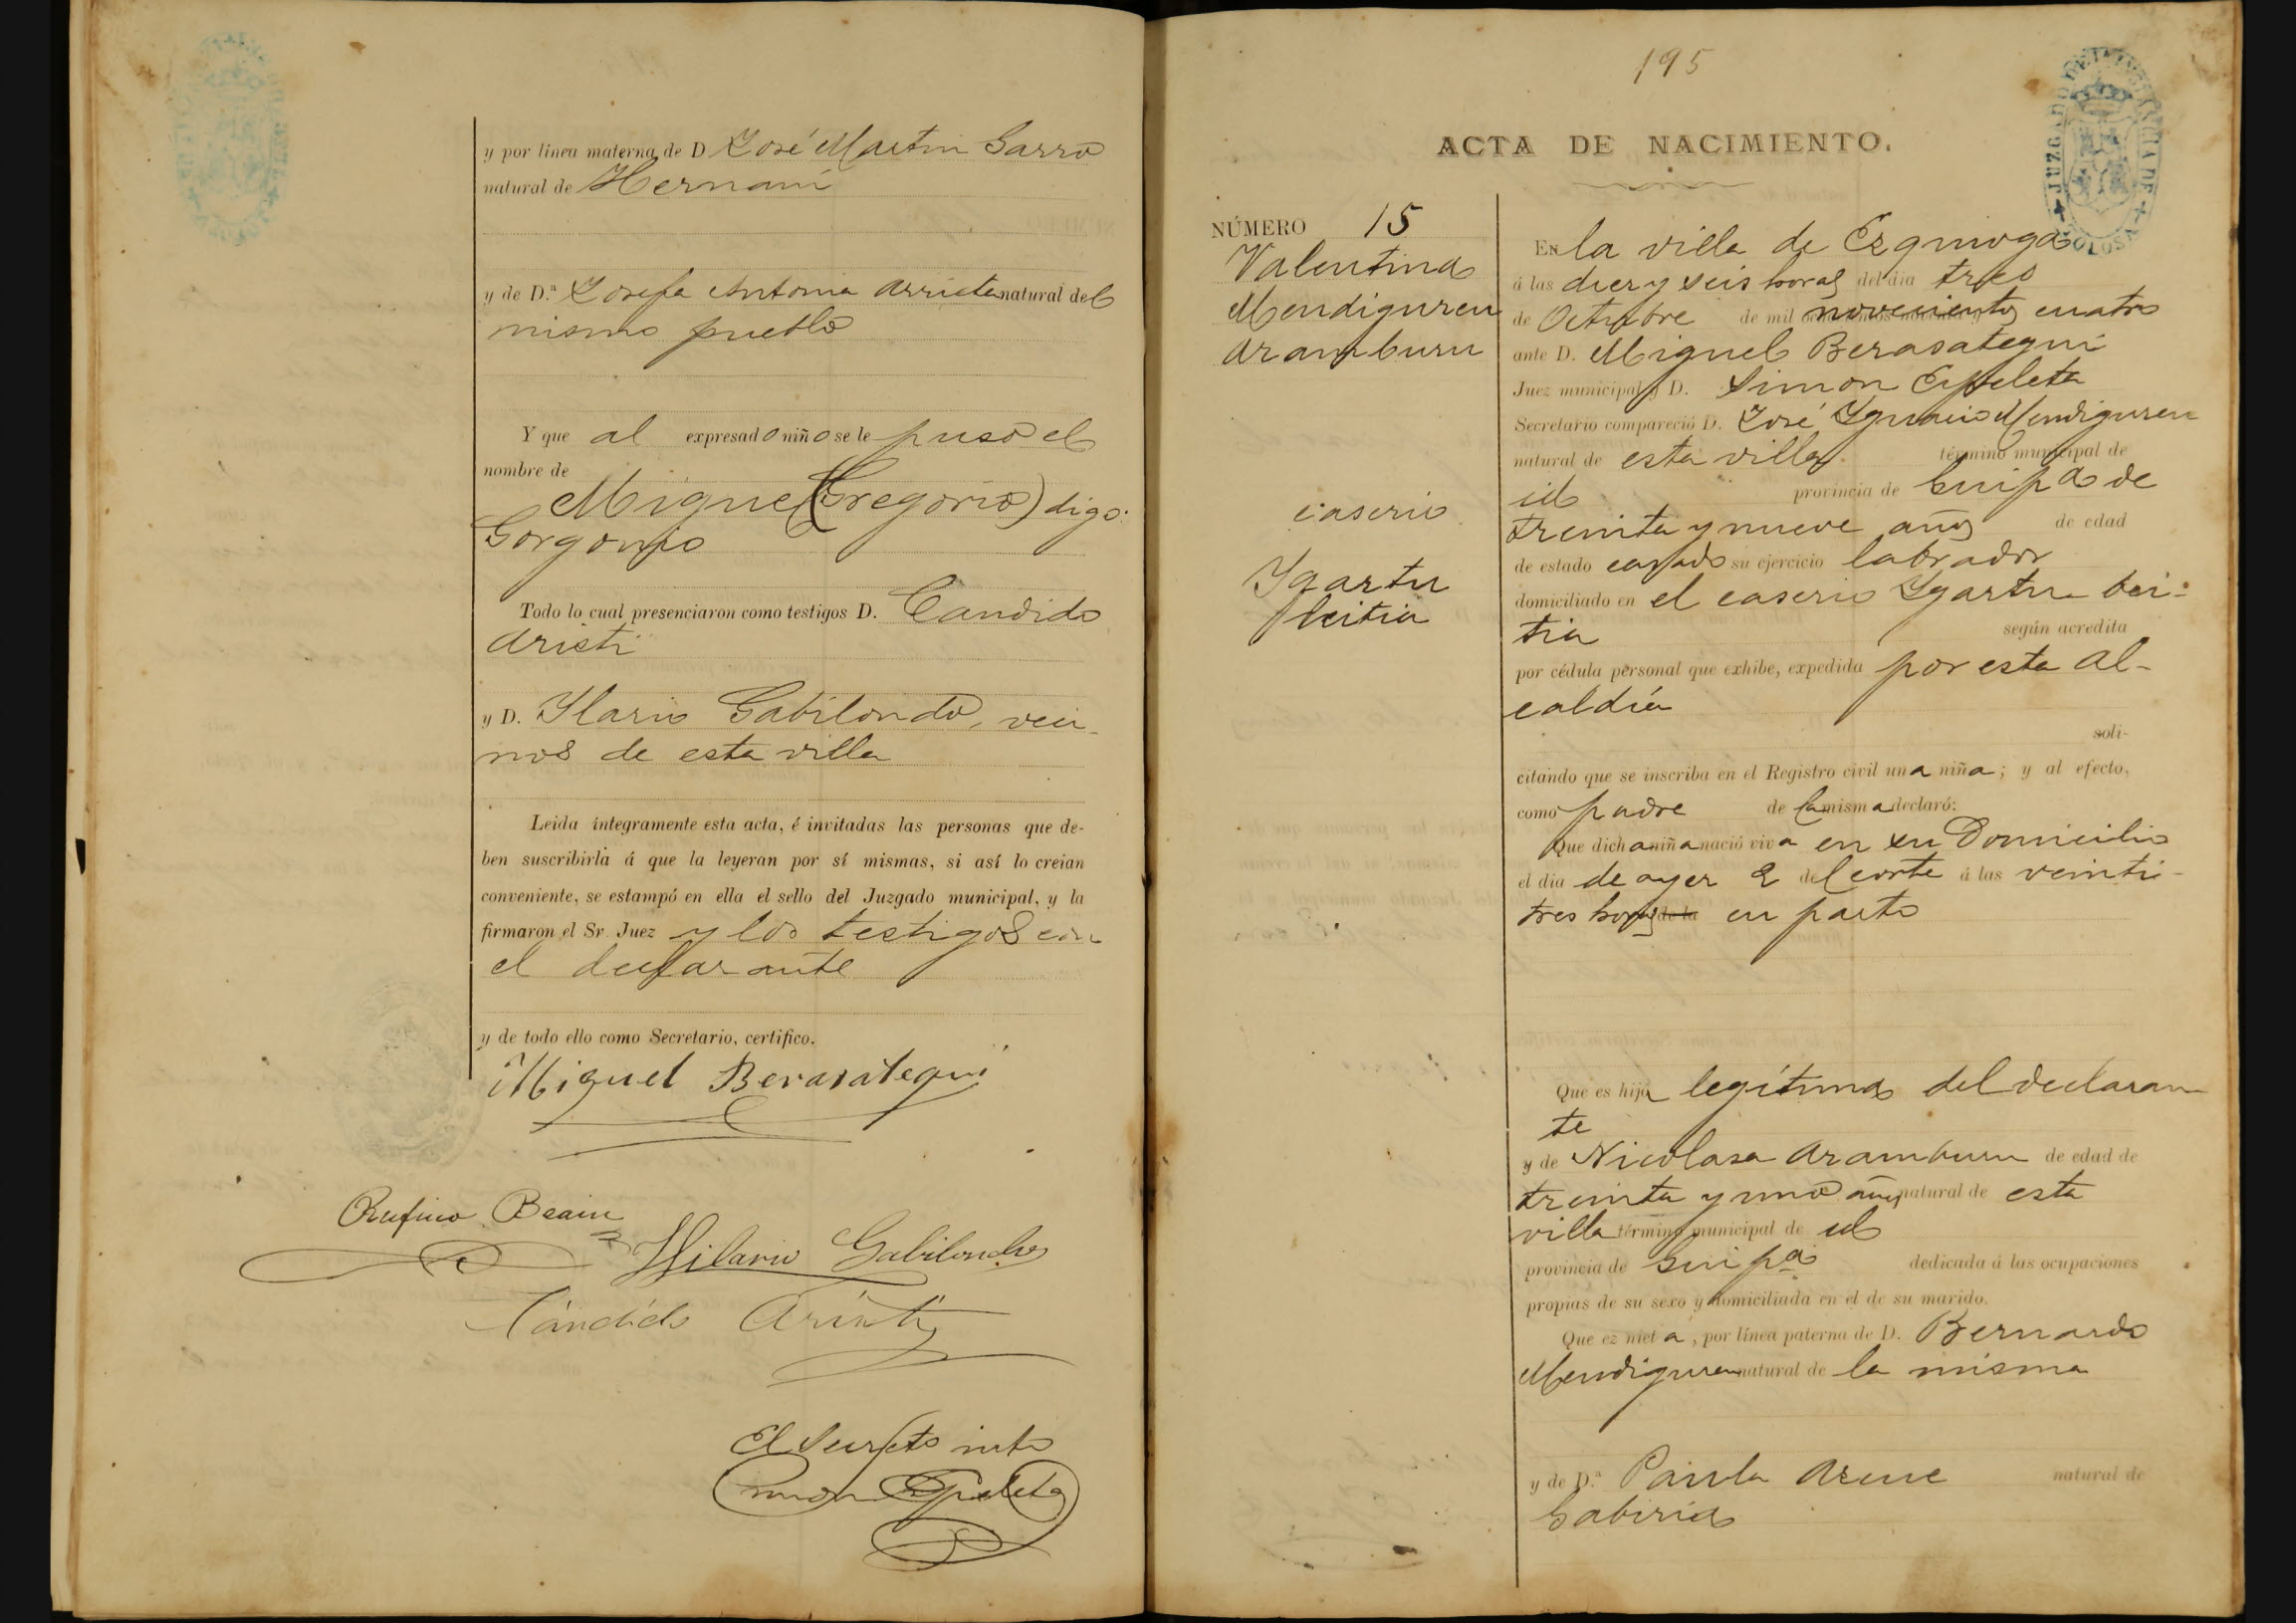 y por línea materna de D José Martin Garro
natural de Hernani
y de D.ª Josefa Antonia Arrieta natural del
mismo pueblo
Y que al expresado niño se le puso el
nombre de
Miguel (Gregorio) digo:
Gorgonio
Todo lo cual presenciaron como testigos D. Candido
Aristi
y D. Ilario Gabilondo, veci-
nos de esta villa
Leida íntegramente esta acta, é invitadas las personas que de-
ben suscribirla á que la leyeran por sí mismas, si así lo creian
conveniente, se estampó en ella el sello del Juzgado municipal, y la
firmaron el Sr. Juez y los testigos con
el declarante
y de todo ello como Secretario, certifico.
Miguel Berasategui
Rufino Beain
Hilario Gabilondo
Cándido Aristi
El Secreto into
Simon Espeleta
195
ACTA DE NACIMIENTO.
NÚMERO 15
Valentina
Mendiguren
Aramburu
caserio
Ygartu
beitia
En la villa de Ezquioga
á las diez y seis horas del dia tres
de Octubre de mil novecientos cuatro
ante D. Miguel Berasategui
Juez municipal y D. Simon Espeleta
Secretario compareció D. José Ygnacio Mendiguren
natural de esta villa término municipal de
id provincia de Guipª de
treinta y nueve años de edad
de estado casado su ejercicio labrador
domiciliado en el caserio Ygartu bei-
tia según acredita
por cédula personal que exhibe, expedida por esta Al-
caldía
soli-
citando que se inscriba en el Registro civil una niña; y al efecto,
como padre de la misma declaró:
Que dicha niña nació viva en su Domicilio
el dia de ayer 2 del corte á las veinti-
tres horas de la en parto
Que es hija legítima del declaran
te
y de Nicolasa Aramburu de edad de
treinta y uno años natural de esta
villa término municipal de id
provincia de Guipª dedicada á las ocupaciones
propias de su sexo y domiciliada en el de su marido.
Que ez nieta, por línea paterna de D. Bernardo
Mendiguren natural de la misma
y de D.ª Paula Arcue natural de
Gabiria